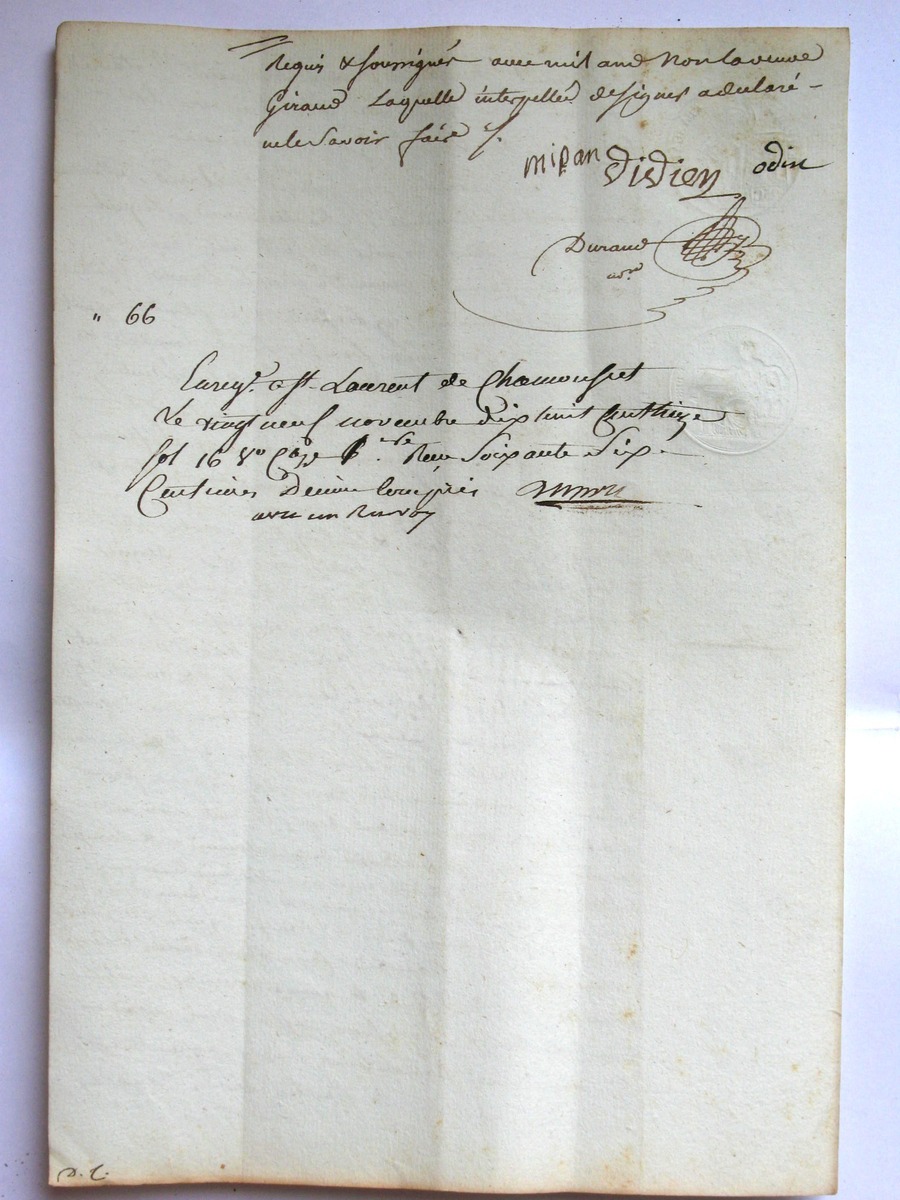 requis & soussignés avec mitand Non la veuve
Giraud Laquelle interpellée de signer a declaré -
ne le Savoir faire /.
mipan Didien odin
Durand
nore
" 66
Enregt. a St. Laurent de Chamousset
Le vingt neuf novembre dix huit Cent treize
fol 16 vo Case 6. Reçu Soixante Six
Centimes Decime Compris
avec un Renvoy
D. L.